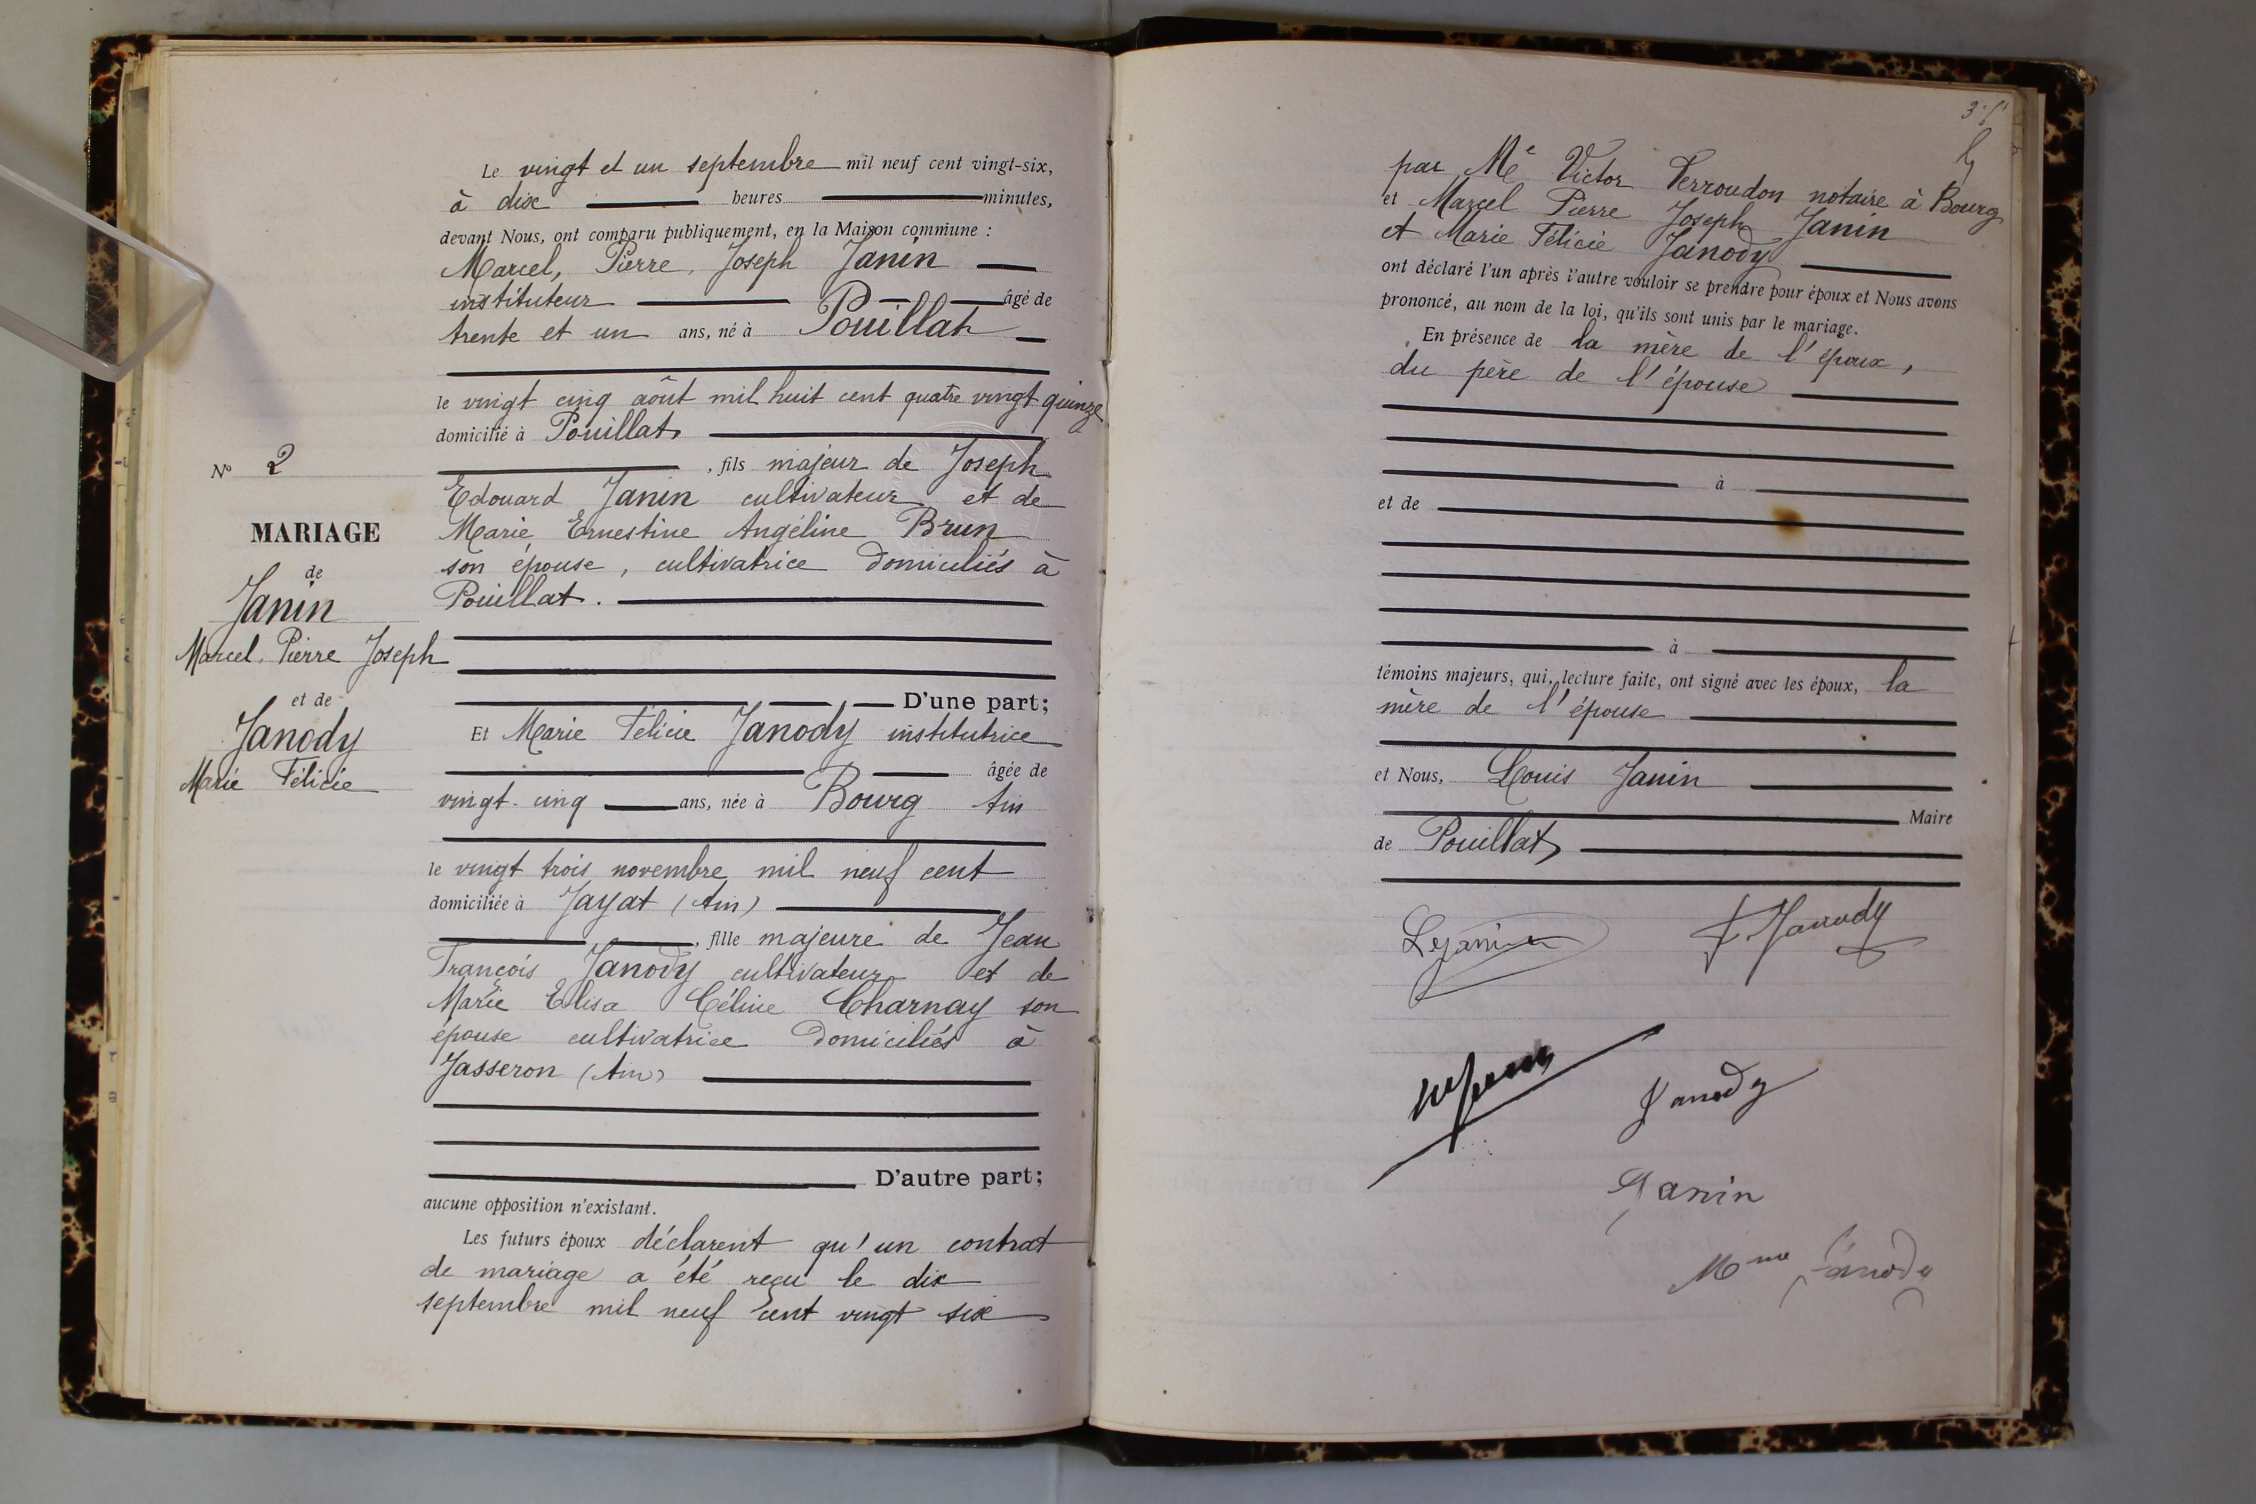 Le vingt et un septembre mil neuf cent vingt-six,
à dix heures minutes,
devant Nous, ont comparu publiquement, en la Maison commune :
Marcel, Pierre, Joseph Janin
instituteur âgé de
trente et un ans, né à Pouillat
le vingt cinq août mil huit cent quatre vingt quinze
domicilié à Pouillat
, fils majeur de Joseph
Edouard Janin cultivateur et de
Marie Ernestine Angéline Brun
son épouse, cultivatrice domiciliés à
Pouillat.
D'une part;
Et Marie Félicie Janody institutrice
âgée de
vingt-cinq ans, née à Bourg Ain
le vingt trois novembre mil neuf cent
domiciliée à Jayat (Ain)
, fille majeure de Jean
François Janody cultivateur et de
Marie Elisa Céline Charnay son
épouse cultivatrice domiciliés à
Jasseron (Ain)
D'autre part;
aucune opposition n'existant.
Les futurs époux déclarent qu'un contrat
de mariage a été reçu le dix
septembre mil neuf cent vingt six
N° 2
MARIAGE
de
Janin
Marcel Pierre Joseph
et de
Janody
Marie Félicie
par Me Victor Perroudon notaire à Bourg
et Marcel Pierre Joseph Janin
et Marie Félicie Janody
ont déclaré l'un après l'autre vouloir se prendre pour époux et Nous avons
prononcé, au nom de la loi, qu'ils sont unis par le mariage.
En présence de la mère de l'époux,
du père de l'épouse
à
et de
à
témoins majeurs, qui, lecture faite, ont signé avec les époux, la
mère de l'épouse
et Nous, Louis Janin
Maire
de Pouillat
F Janody
Janody
Janin
Mme Janody